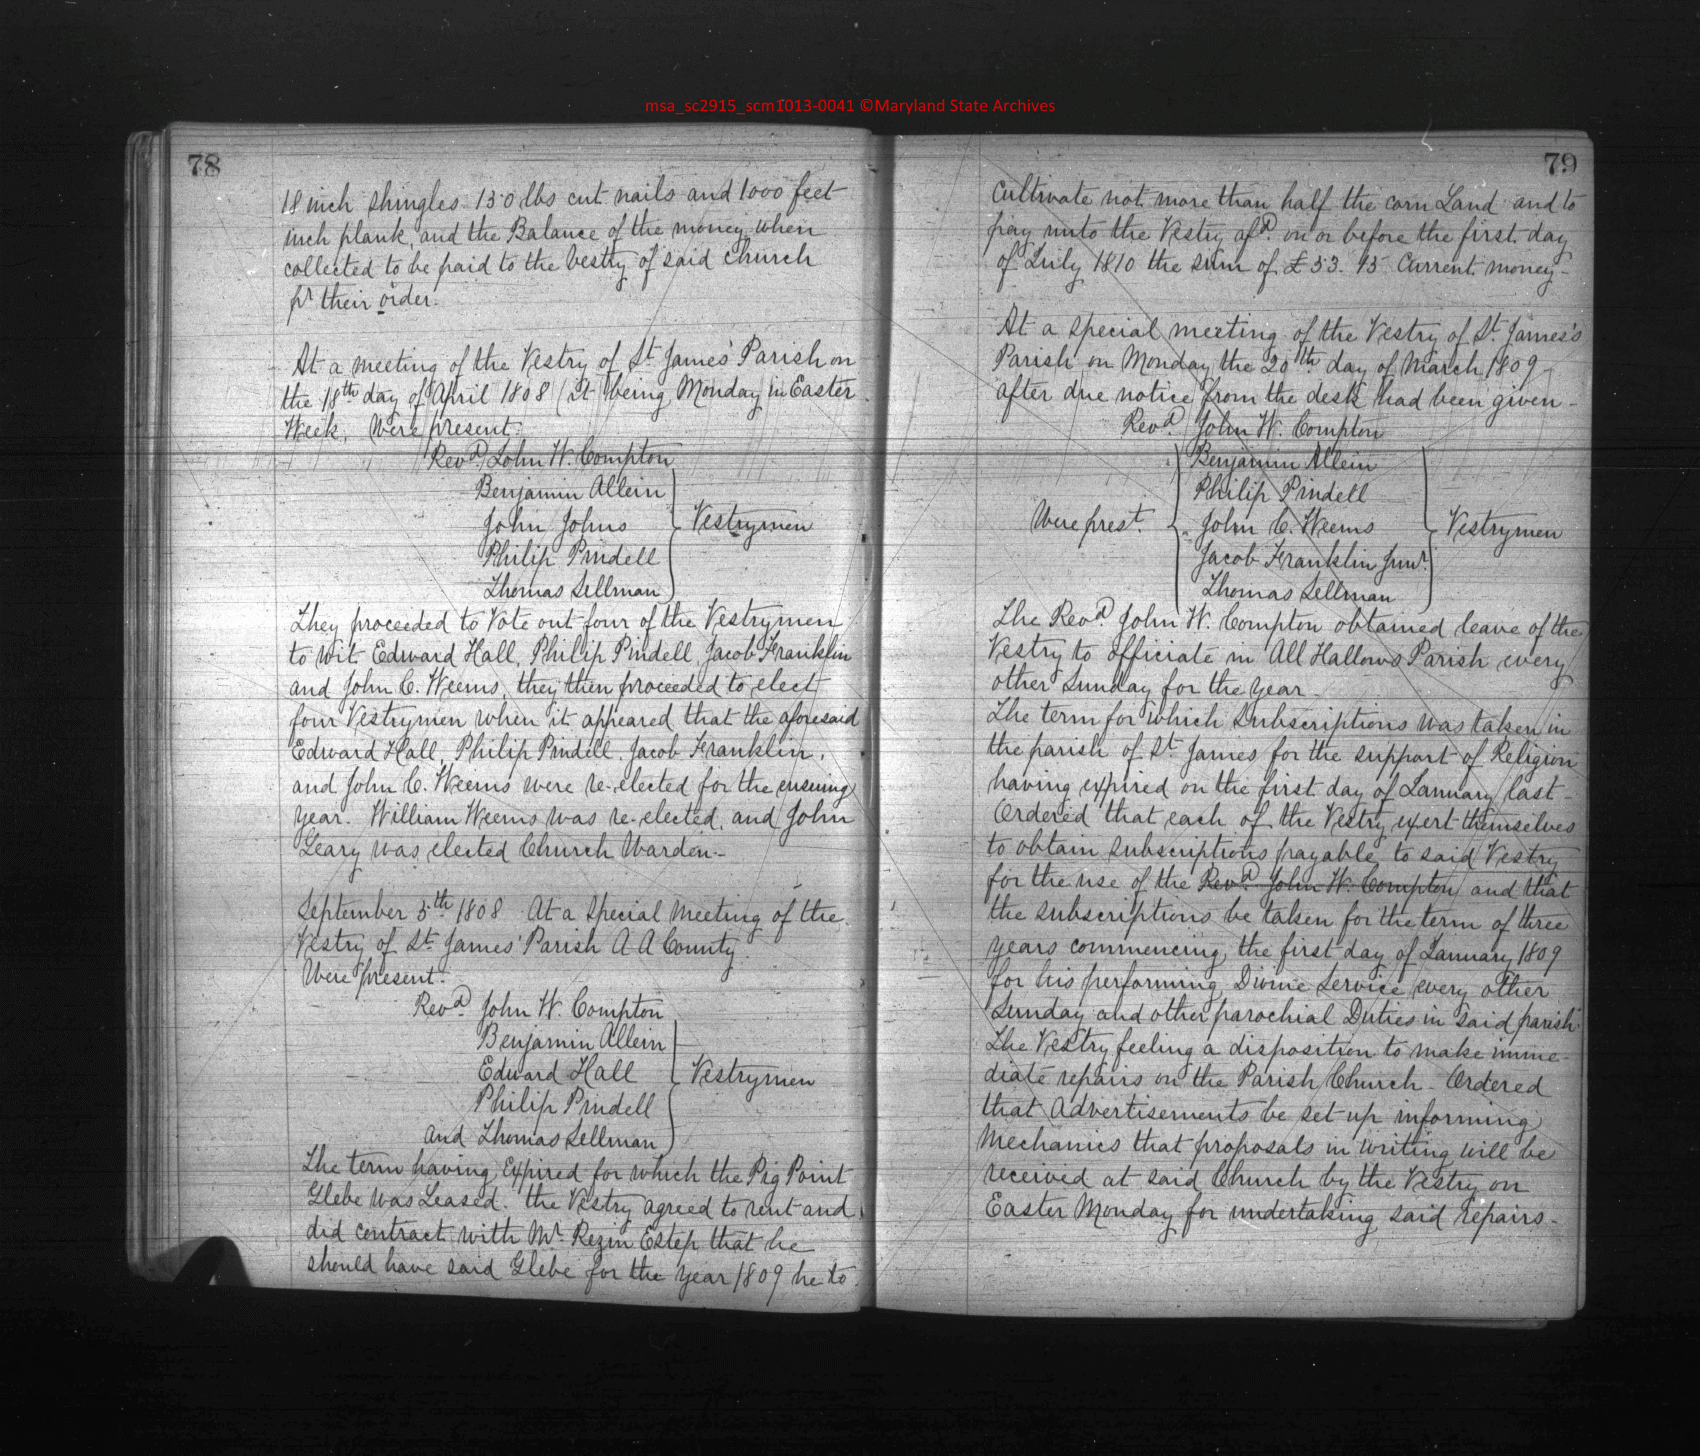 msa_sc2915_scm1013-0041 ©Maryland State Archives
78
18 inch shingles 150 lbs cut nails and 1000 feet
inch plank, and the Balance of the money when
collected to be paid to the Vestry of said church
pr their order.
At a meeting of the Vestry of St James' Parish on
the 18th day of April 1808 (it being Monday in Easter
Week, Were present.
Revd John W. Compton
Benjamin Allein
John Johns
Vestrymen
Philip Pindell
Thomas Sellman
They proceeded to Vote out four of the Vestrymen
to wit. Edward Hall, Philip Pindell, Jacob Franklin
and John C. Weems, they then proceeded to elect
four Vestrymen when it appeared that the aforesaid
Edward Hall, Philip Pindell, Jacob Franklin,
and John C. Weems were re-elected for the ensuing
year. William Weems was re-elected, and John
Geary was elected Church Warden.-
September 5th 1808 At a Special Meeting of the
Vestry of St James' Parish A A County
Were present.
Revd John W. Compton
Benjamin Allein
Edward Hall
Vestrymen
Philip Pindell
and Thomas Sellman
The term having Expired for which the Pig Point
Glebe was Leased. the Vestry agreed to rent and
did contract with Mr Rezin Estep that he
should have said Glebe for the year 1809 he to
79
Cultivate not more than half the corn Land and to
pay unto the Vestry afd on or before the first day
of July 1810 the sum of £53.15 Current money-
At a special meeting of the Vestry of St James's
Parish on Monday the 20th day of March 1809
after due notice from the desk had been given-
Revd John W. Compton
Benjamin Allein
Philip Pindell
Were prest.
John C. Weems
Vestrymen
Jacob Franklin Junr.
Thomas Sellman
The Revd John W. Compton obtained leave of the
Vestry to officiate in All Hallows Parish every
other Sunday for the Year-
The term for which Subscriptions was taken in
the parish of St James for the support of Religion
having expired on the first day of January last-
Ordered that each of the Vestry exert themselves
to obtain subscriptions payable to said Vestry
for the use of the Revd John W. Compton and that
the subscriptions be taken for the term of three
years commencing the first day of January 1809
for his performing Divine Service every other
Sunday and other parochial Duties in said parish
The Vestry feeling a disposition to make imme-
diate repairs on the Parish Church- Ordered
that Advertisements be set up informing
Mechanics that proposals in writing will be
received at said Church by the Vestry on
Easter Monday for undertaking said repairs-